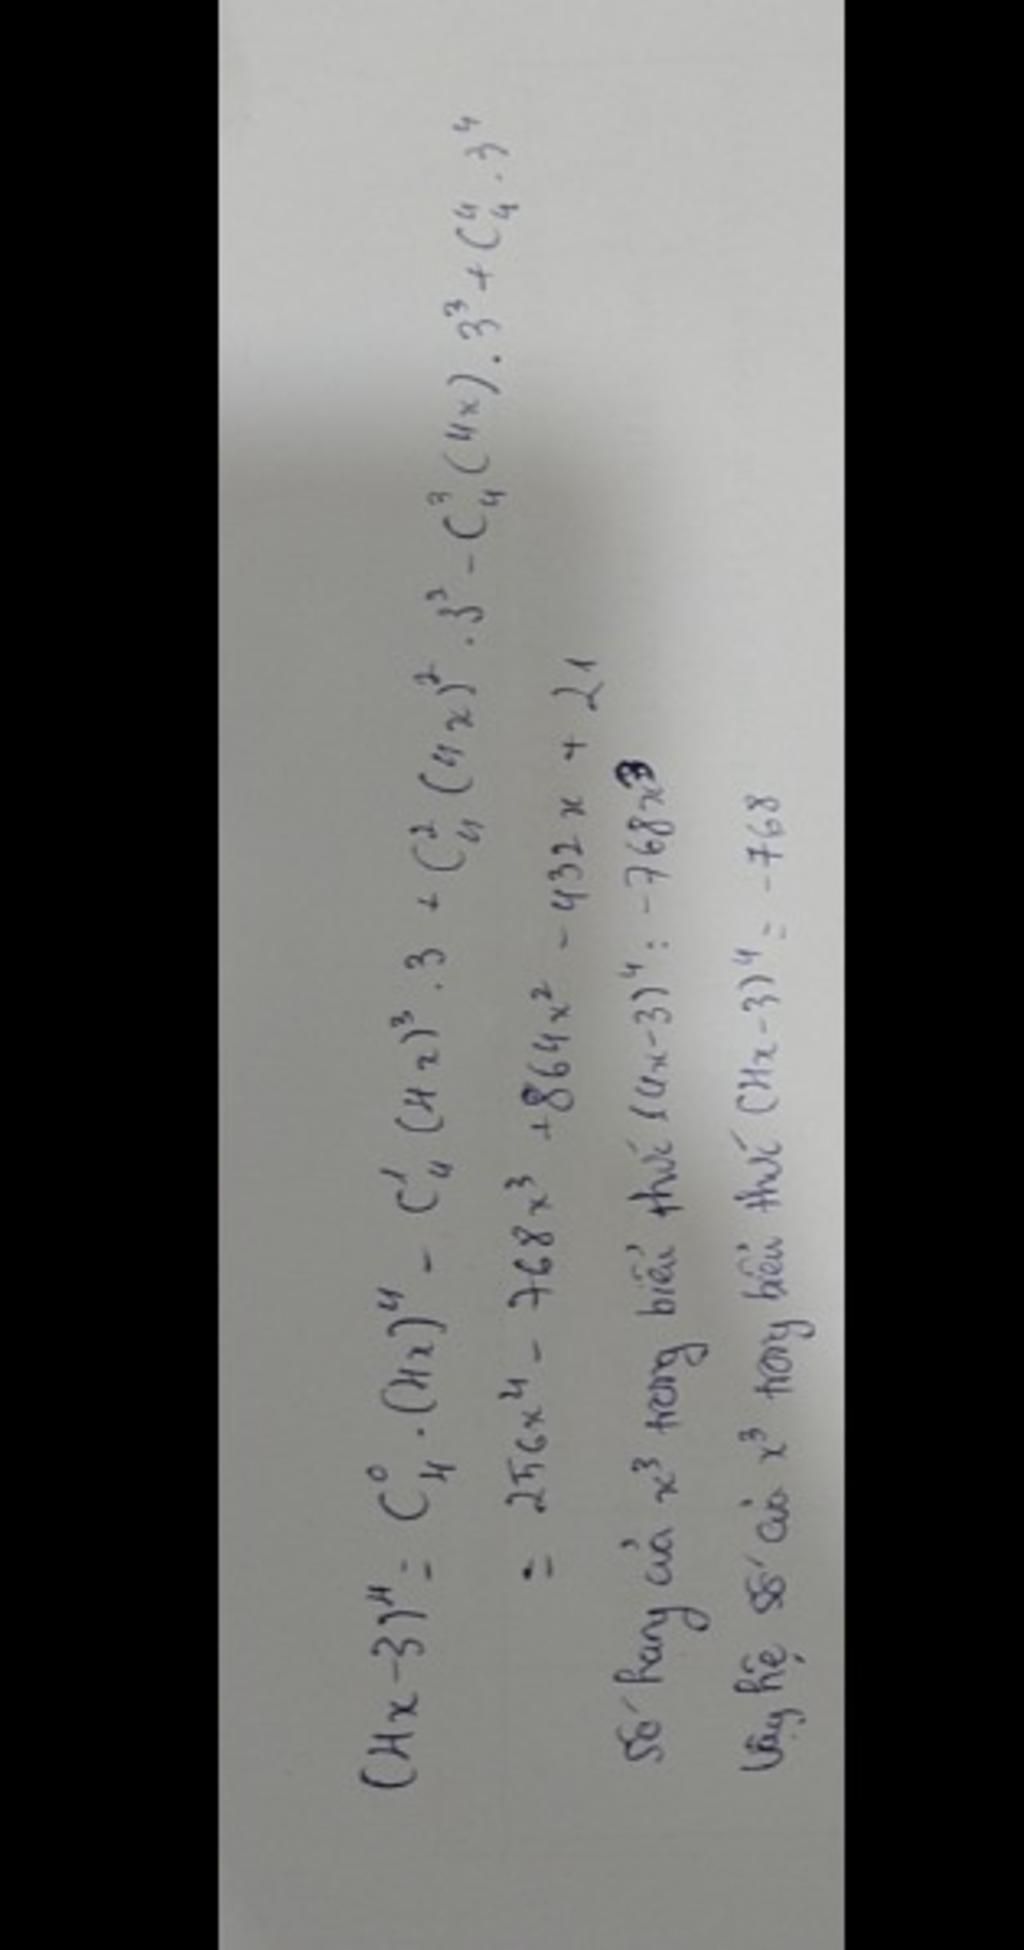 (4x-3)⁴ = C₄⁰.(4x)⁴ - C₄¹(4x)³.3 + C₄²(4x)².3² - C₄³(4x).3³ + C₄⁴.3⁴
= 256x⁴ - 768x³ + 864x² - 432x + 21
Số hạng của x³ trong biểu thức (4x-3)⁴ : -768x³
Vậy hệ số của x³ trong biểu thức (4x-3)⁴ = -768